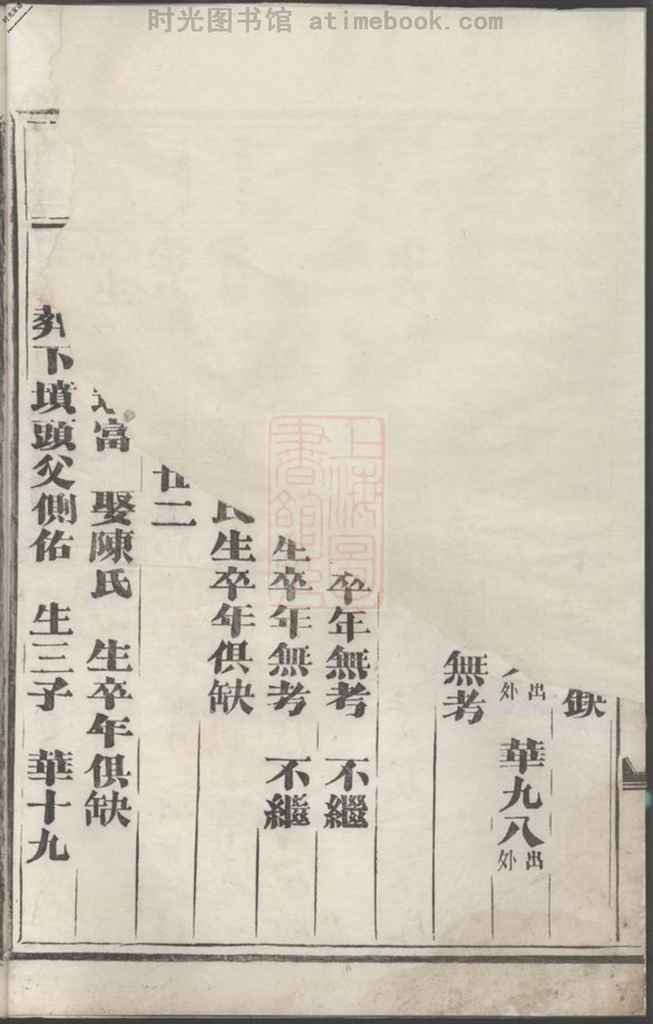 时光图书馆 atimebook.com
缺
出外 華九八 出外
無考
卒年無考 不繼
生卒年無考 不繼
氏生卒年俱缺
廿二
富 娶陳氏 生卒年俱缺
葬下墳頭父側佑 生三子 華十九
上海圖書館藏